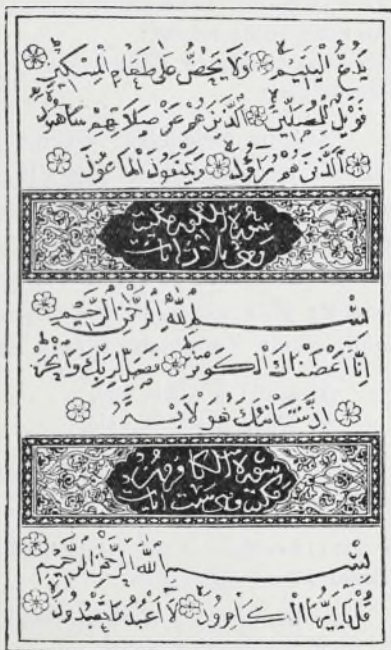 يَدُعُّ الْيَتِيمَ وَلَا يَحُضُّ عَلَىٰ طَعَامِ الْمِسْكِينِ
فَوَيْلٌ لِلْمُصَلِّينَ الَّذِينَ هُمْ عَنْ صَلَاتِهِمْ سَاهُونَ
الَّذِينَ هُمْ يُرَاؤُنَ وَيَمْنَعُونَ الْمَاعُونَ
سورة الكوثر مكية
وهي ثلاث آيات
بِسْمِ اللَّهِ الرَّحْمَٰنِ الرَّحِيمِ
إِنَّا أَعْطَيْنَاكَ الْكَوْثَرَ فَصَلِّ لِرَبِّكَ وَانْحَرْ
إِنَّ شَانِئَكَ هُوَ الْأَبْتَرُ
سورة الكافرون
مكية وهي ست آيات
بِسْمِ اللَّهِ الرَّحْمَٰنِ الرَّحِيمِ
قُلْ يَا أَيُّهَا الْكَافِرُونَ لَا أَعْبُدُ مَا تَعْبُدُونَ